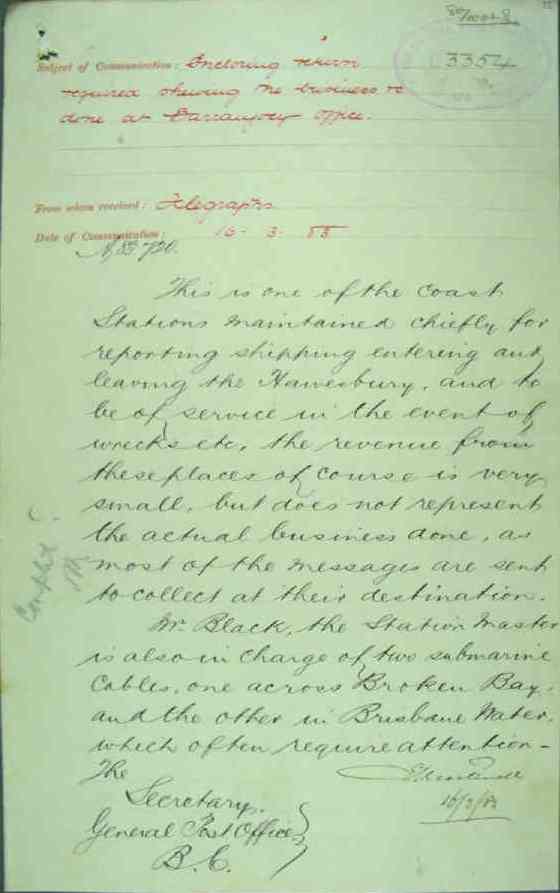 3354
Subject of Communication: Enclosing return
required shewing the business re
done at Barranjoey office.
From whom received: Telegraphs
Date of Communication: 16 - 3 - 88
720.
This is one of the Coast
Stations maintained chiefly for
reporting shipping entering and
leaving the Hawesbury, and to
be of service in the event of
wrecks etc, the revenue from
these places of course is very
small, but does not represent
the actual business done, as
most of the messages are sent
to collect at their destination.
Mr. Black, the Station Master
is also in charge of two submarine
Cables, one across Broken Bay,
and the other in Brisbane Water,
which often require attention -
The
Secretary,
General Post Office
B.C.
16/3/88